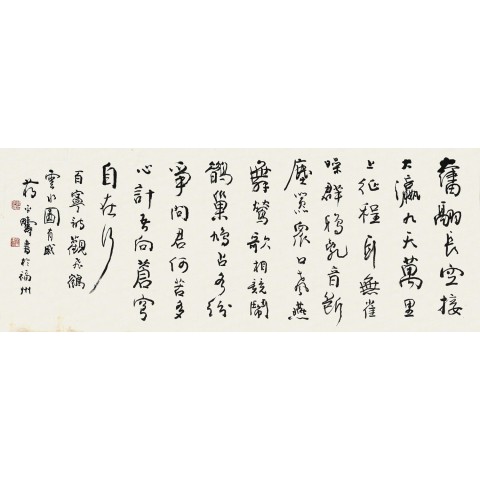 奮翮长空接
大瀛九天萬里
上征程耳無雀
噪群鴉乱音斷
塵囂衆口声燕
舞鶯歌相競鬧
鵲巢鳩占各紛
爭問君何苦多
心計吾向蒼穹
自在行
百寧詞觀飛鶴
雲水圖有感
蒋平疇書於福州